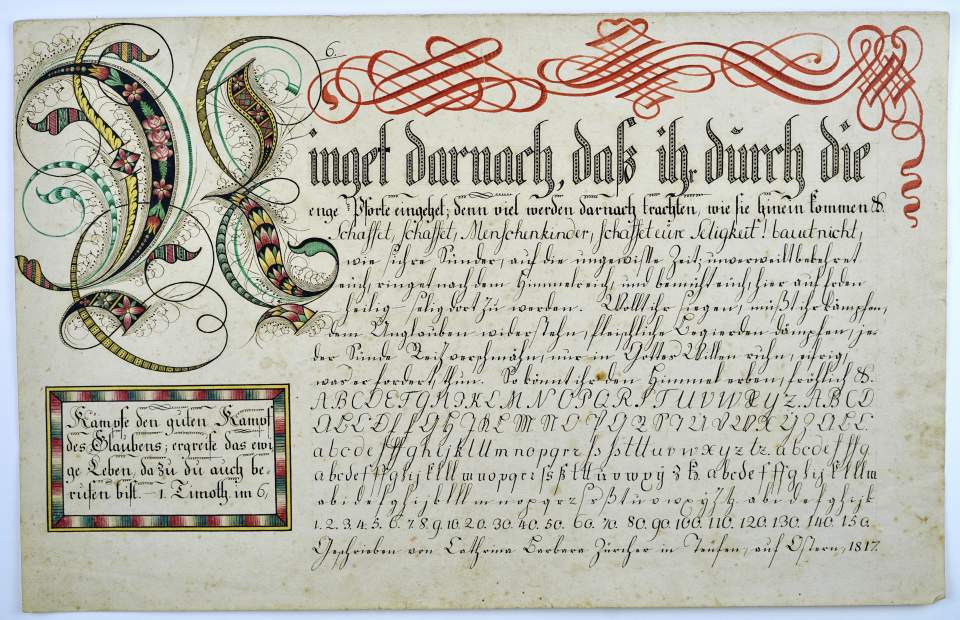 6.
Ringet darnach, daß ihr durch die
enge Pforte eingehet; denn viel werden darnach trachten, wie sie hinein kommen &.
Schaffet, schaffet, Menschenkinder, schaffet eure Seligkeit! bauet nicht,
wie sichre Sünder, auf die ungewisse Zeit; unverweilt bekehret
euch, ringet nach dem Himmelreich, und bemüht euch, hier auf Erden
heilig, selig dort zu werden. Wollt ihr siegen, müßt ihr kämpfen,
dem Unglauben widerstehn, fleischliche Begierden dämpfen, je-
der Sünde Reiz verschmähn, nur in Gottes Willen ruhn, eifrig,
was er fordert, thun. So könnt ihr den Himmel erben, fröhlich &.
A B C D E F G H I K L M N O P Q R S T U V W X Y Z. A B C D
A B C D E F G H I K L M N O P Q R S T U V W X Y Z A B C
a b c d e f ff g h i j k l ll m n o p q r z s ß st t u v w x y z tz. a b c d e f ff g
a b c d e f ff g h i j k l ll m n o p q r s ß t u v w x y z a b c d e f ff g h i j k l ll m
a b c d e f g h i j k l ll m n o p q r s ß t u v w x y z tz a b c d e f g h i j k
1. 2. 3. 4. 5. 6. 7. 8. 9. 10. 20. 30. 40. 50. 60. 70. 80. 90. 100. 110. 120. 130. 140. 150.
Geschrieben von Cathrina Barbara Zürcher in Teufen, auf Ostern, 1817.
Kämpfe den guten Kampf
des Glaubens; ergreife das ewi
ge Leben, dazu du auch be-
rufen bist. – 1. Timoth. im 6,